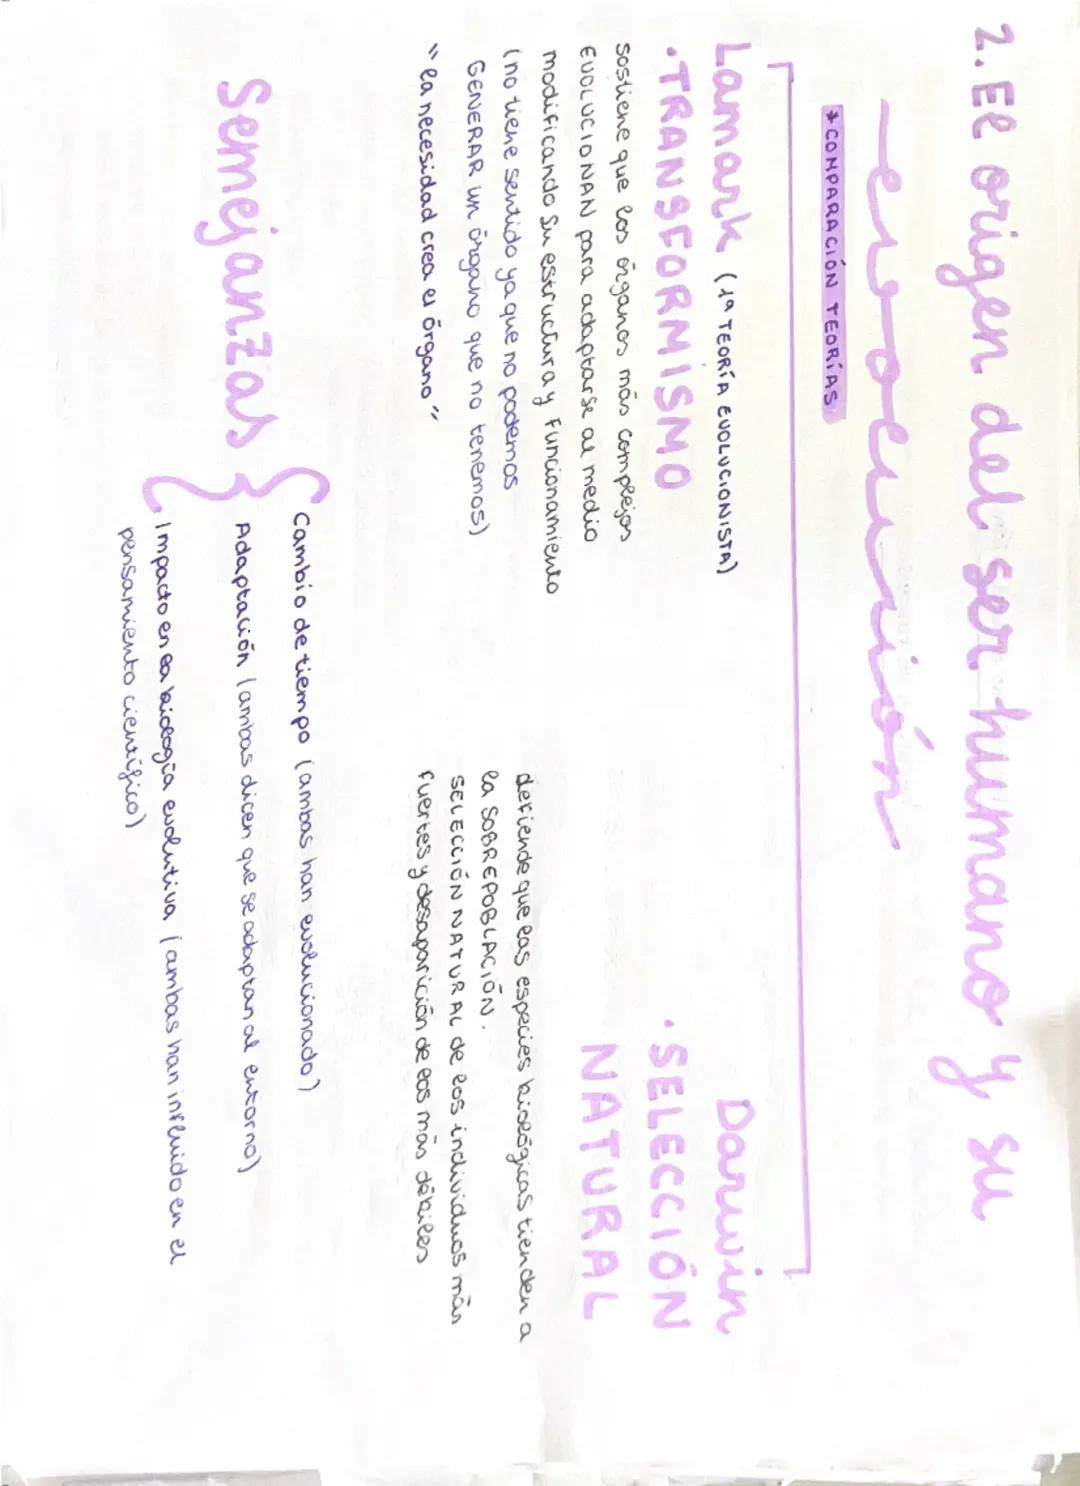 2. El origen del ser humano y su
evolución
* COMPARACIÓN TEORÍAS
Lamark (1ª TEORÍA EVOLUCIONISTA)
• TRANSFORMISMO
sostiene que los órganos más complejos
EVOLUCIONAN para adaptarse al medio
modificando su estructura y Funcionamiento
(no tiene sentido ya que no podemos
GENERAR un órgano que no tenemos)
"la necesidad crea el órgano"
Darwin
• SELECCIÓN
NATURAL
defiende que las especies biológicas tienden a
la SOBREPOBLACIÓN.
SELECCIÓN NATURAL de los individuos más
fuertes y desaparición de los más débiles
Semejanzas
Cambio de tiempo (ambas han evolucionado)
Adaptación (ambas dicen que se adaptan al entorno)
Impacto en la biología evolutiva (ambas han influido en el
pensamiento científico)